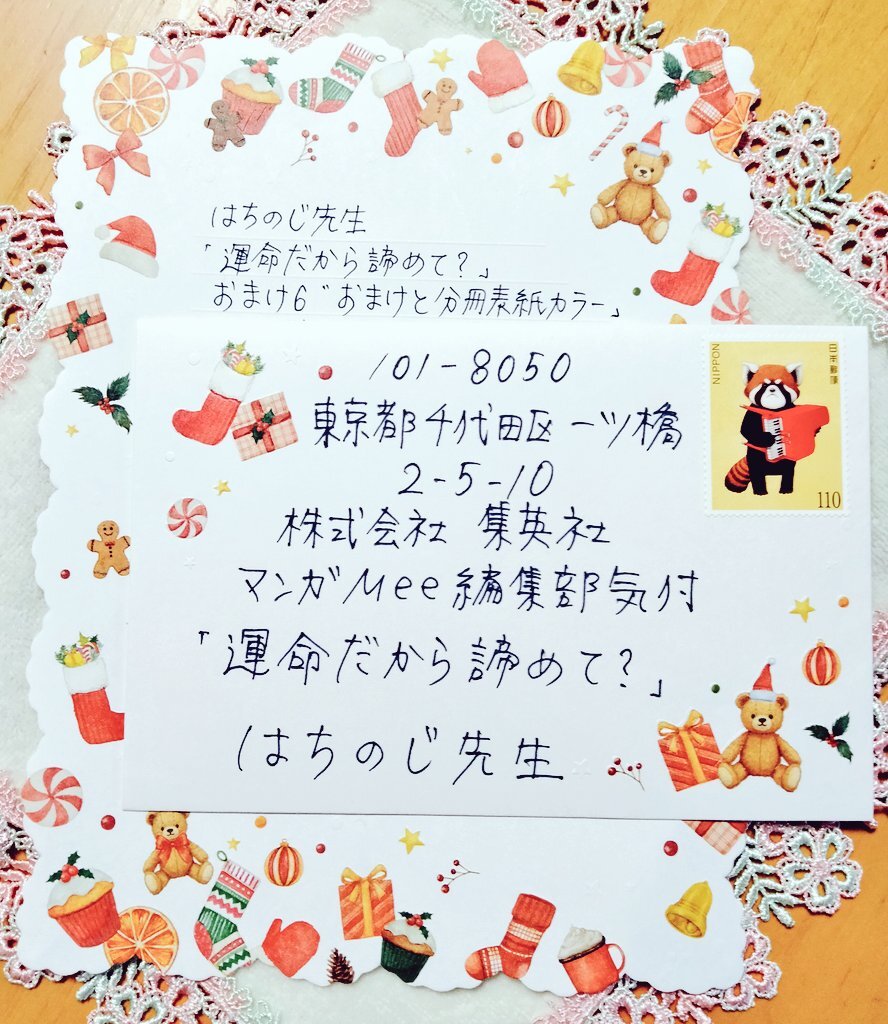 はちのじ先生
「運命だから諦めて?」
おまけ6 "おまけと分冊表紙カラー」
101-8050
東京都千代田区一ツ橋
2-5-10
株式会社 集英社
マンガMee編集部気付
「運命だから諦めて?」
はちのじ先生
NIPPON
日本郵便
110